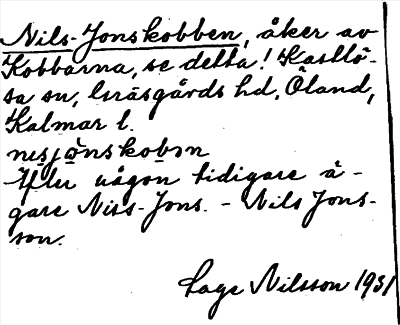 Nils-Jonskobben, åker av
Kobbarna, se detta! Kastlö-
sa sn, Gräsgårds hd, Öland,
Kalmar l.
nisjònskobən
Efter någon tidigare ä-
gare Nils-Jons. - Nils Jons-
son.
Lage Nilsson 1931